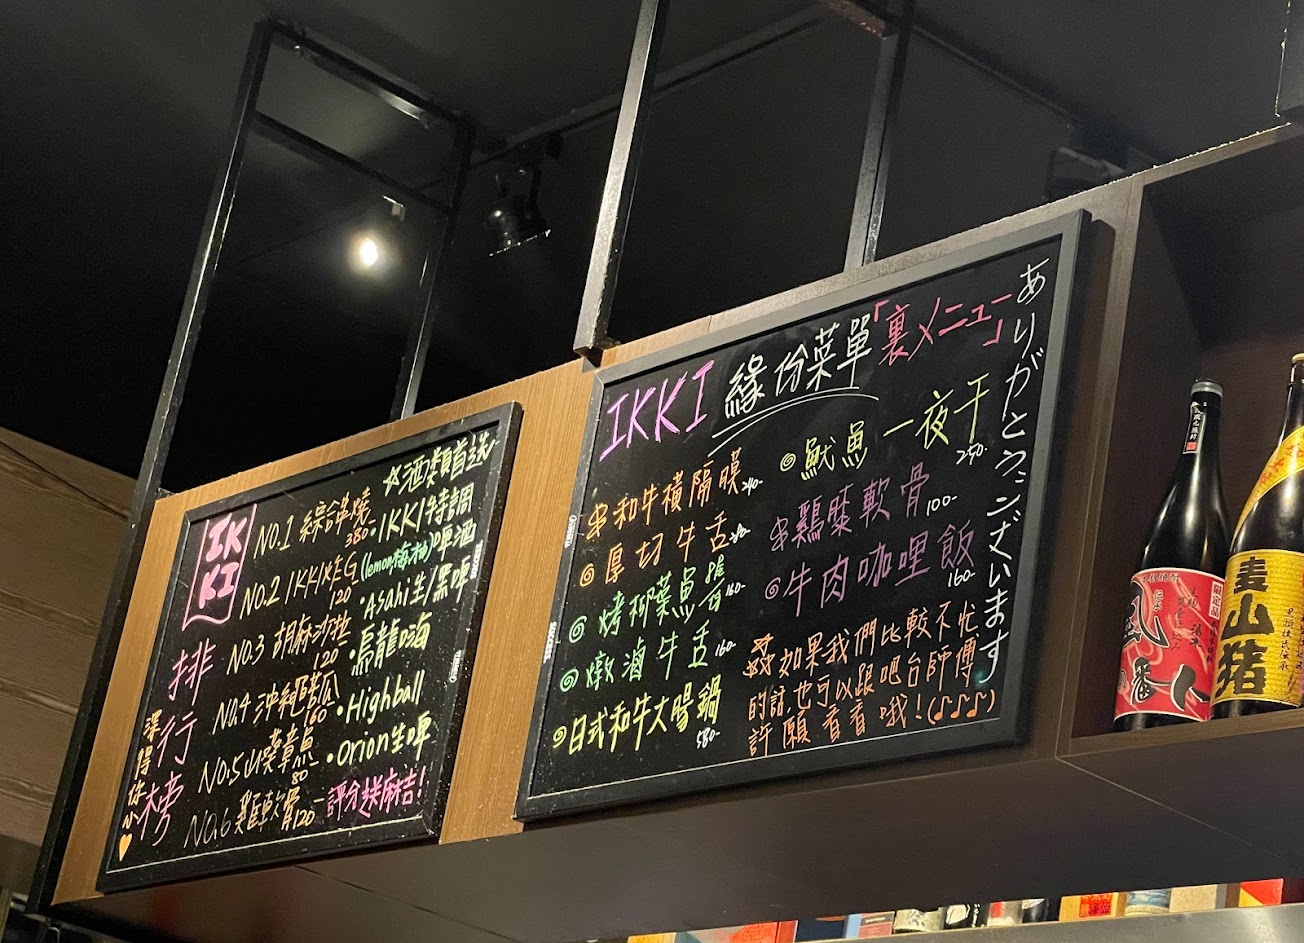 IKKI
排行榜
深得你心
☆酒類首送
NO.1 綜合串燒
380-
NO.2 IKKI炸EG
120
NO.3 胡麻沙拉
120-
NO.4 沖繩苦瓜
160
NO.5 山葵章魚
80
NO.6 雞軟骨
120-
•IKKI特調
(lemon梅柚)啤酒
•Asahi生/黑啤
•烏龍嗨
•Highball
•Orion生啤
評分送麻吉!
IKKI 緣份菜單「裏メニュー」
串和牛橫隔膜
240-
厚切牛舌
烤柳葉魚
160-
燉滷牛舌
160-
日式和牛大腸鍋
580-
魷魚一夜干
250-
串鶏膝軟骨
100-
牛肉咖哩飯
160-
☆如果我們比較不忙
的話,也可以跟吧台師傅
許願看看哦!(♪♪♪)
ありがとうございます
限定品
风
番
人
麦
山
猪